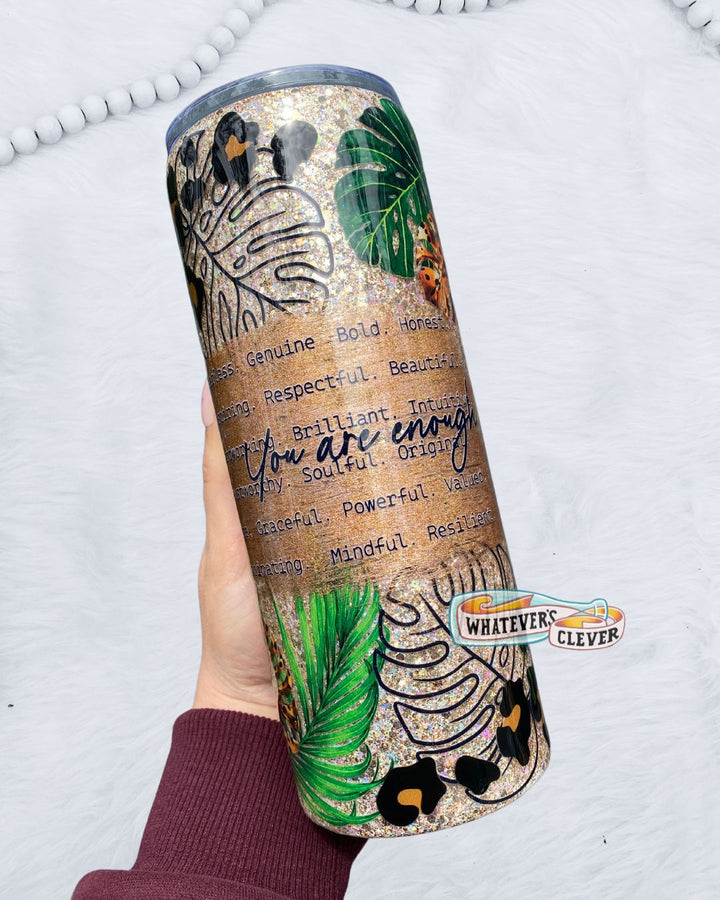 Genuine Bold. Honest.
Respectful. Beautiful.
Brilliant. Intuitive
You are enough
Soulful. Origin
Graceful. Powerful. Valued.
Mindful. Resilient
WHATEVER'S
CLEVER